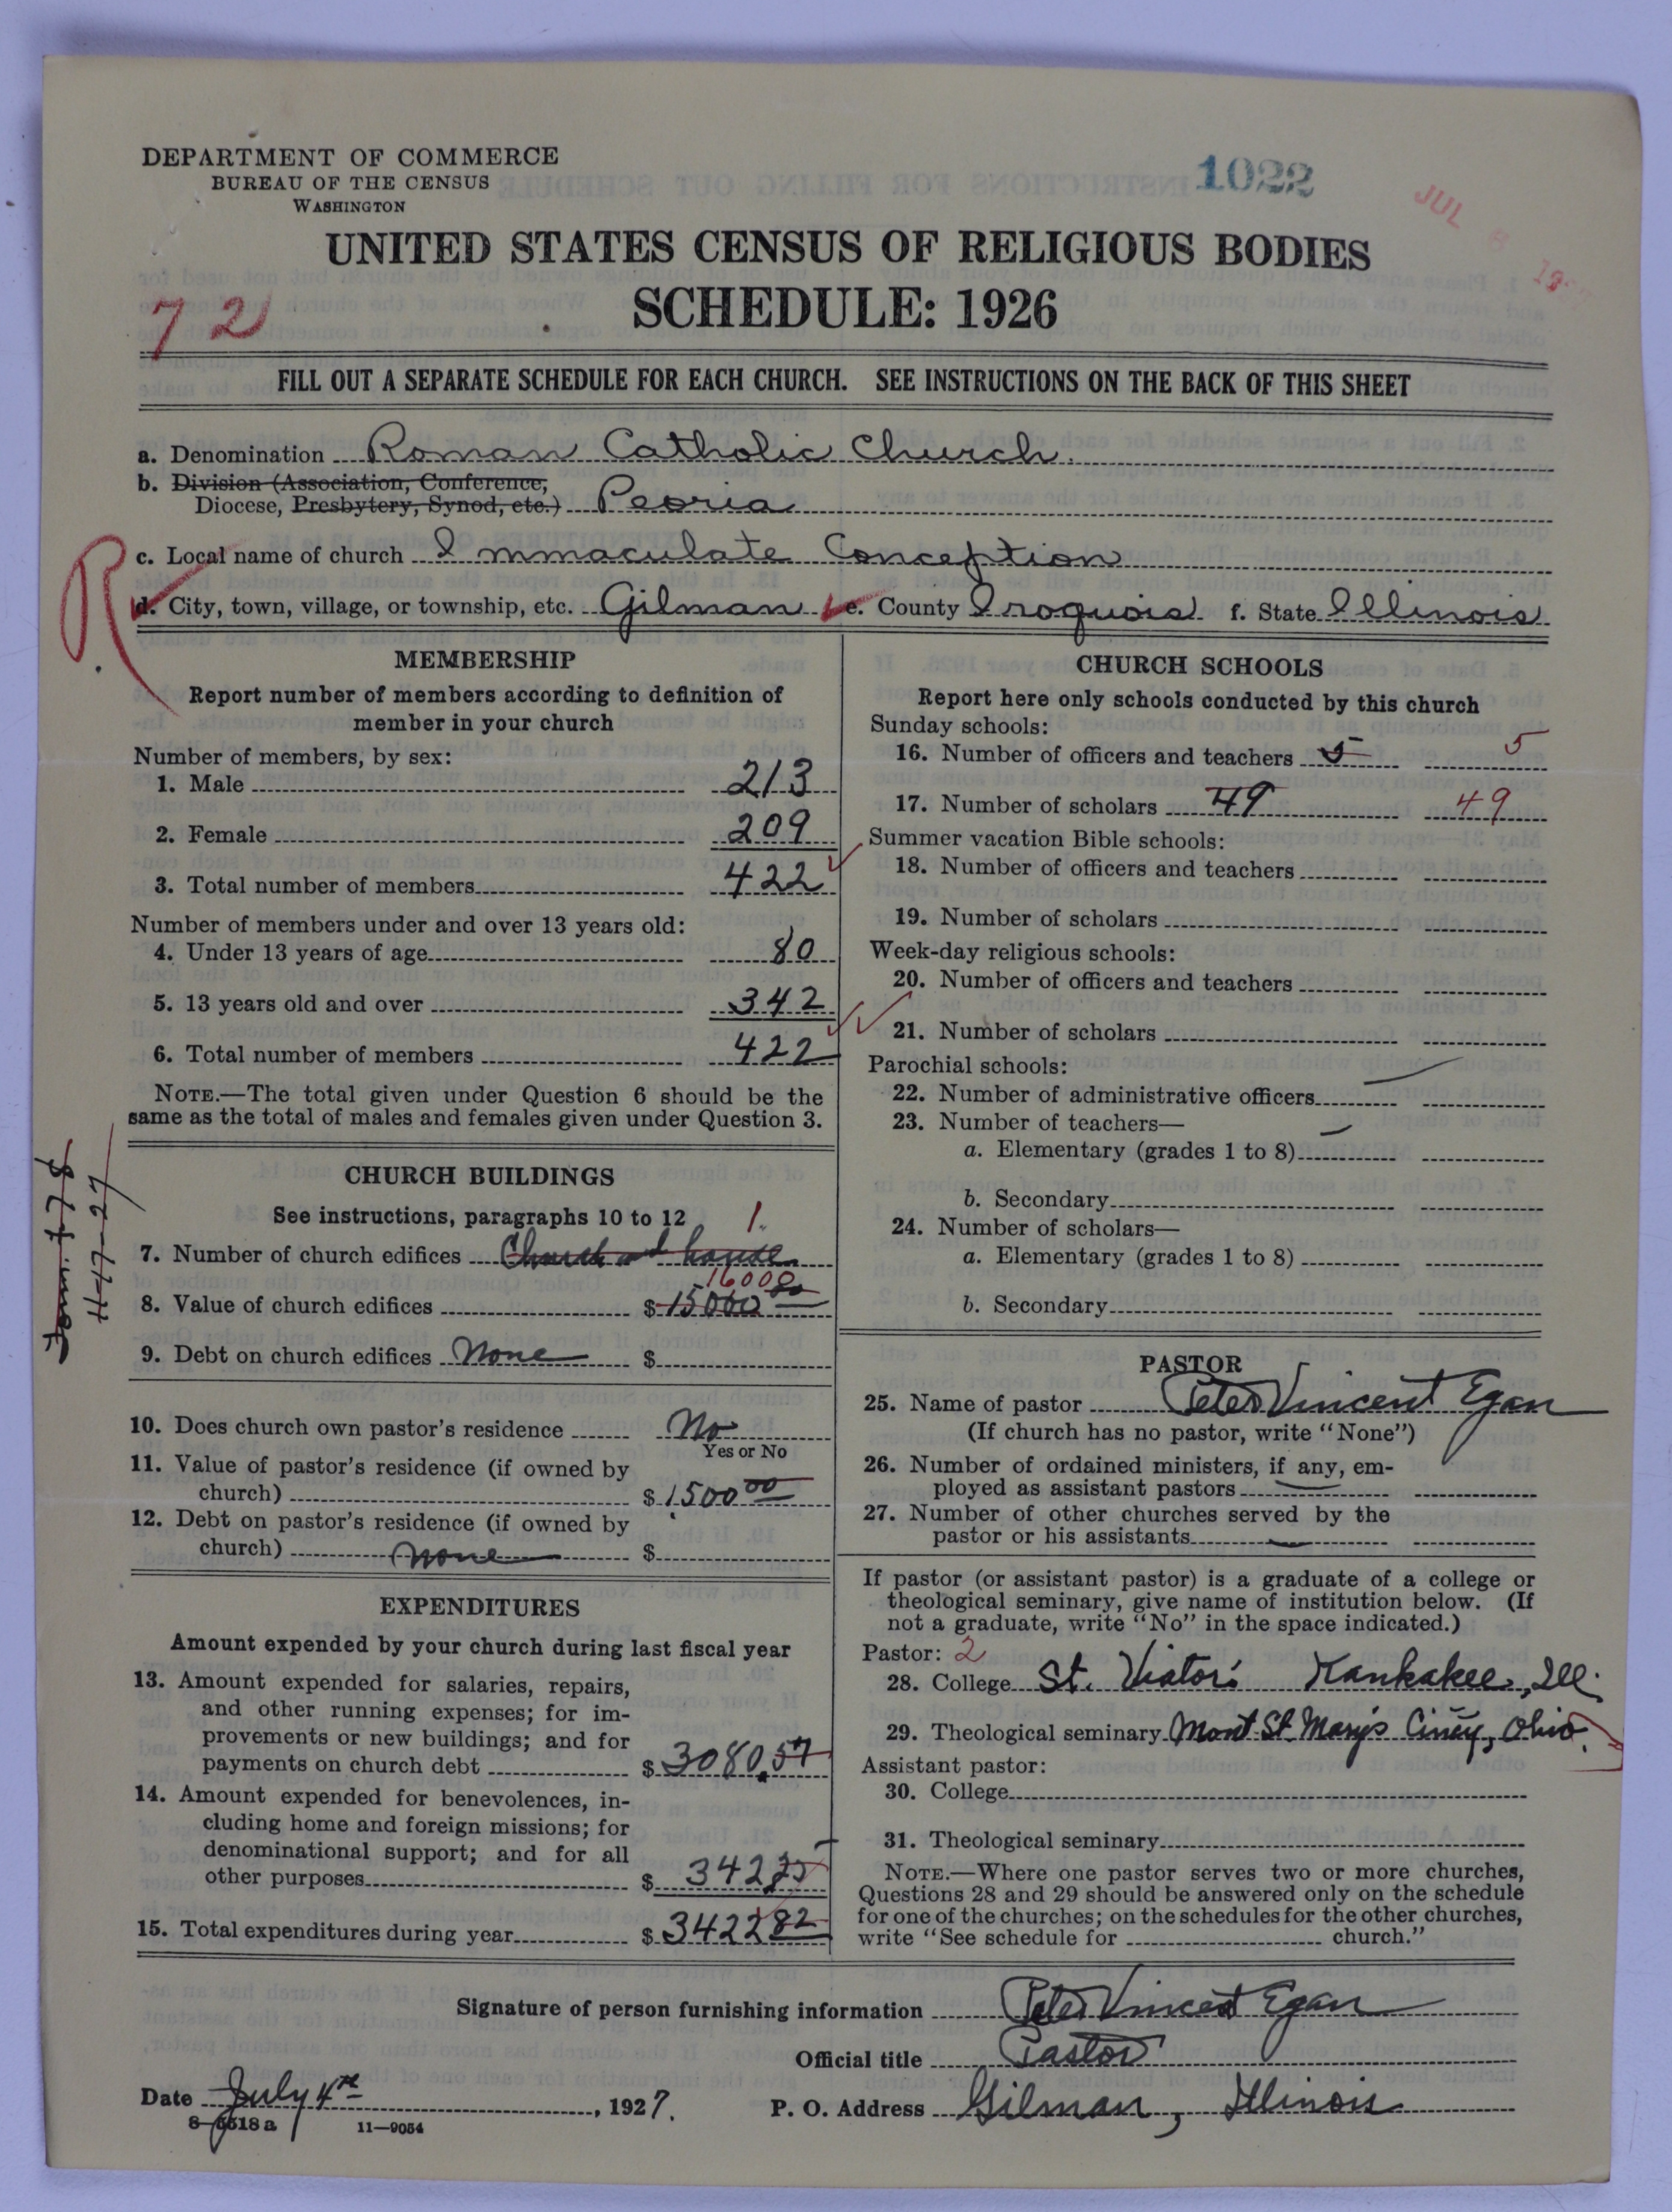 DEPARTMENT OF COMMERCE
BUREAU OF THE CENSUS
WASHINGTON
1022
JUL 8 192
UNITED STATES CENSUS OF RELIGIOUS BODIES
SCHEDULE: 1926
72
FILL OUT A SEPARATE SCHEDULE FOR EACH CHURCH. SEE INSTRUCTIONS ON THE BACK OF THIS SHEET
a. Denomination Roman Catholic Church.
b. Division (Association, Conference,
Diocese, Presbytery, Synod, etc.) Peoria
R
c. Local name of church Immaculate Conception
d. City, town, village, or township, etc. Gilman e. County Iroquois f. State Illinois
MEMBERSHIP
Report number of members according to definition of
member in your church
Number of members, by sex:
1. Male 213
2. Female 209
3. Total number of members 422
Number of members under and over 13 years old:
4. Under 13 years of age 80
5. 13 years old and over 342
6. Total number of members 422
NOTE.—The total given under Question 6 should be the
same as the total of males and females given under Question 3.
CHURCH BUILDINGS
See instructions, paragraphs 10 to 12
1.
7. Number of church edifices Church and house
16000
8. Value of church edifices $15000 00
9. Debt on church edifices None $
10. Does church own pastor's residence No
Yes or No
11. Value of pastor's residence (if owned by
church) $1500 00
12. Debt on pastor's residence (if owned by
church) None $
EXPENDITURES
Amount expended by your church during last fiscal year
13. Amount expended for salaries, repairs,
and other running expenses; for im-
provements or new buildings; and for
payments on church debt $3080.57
14. Amount expended for benevolences, in-
cluding home and foreign missions; for
denominational support; and for all
other purposes $342 25
15. Total expenditures during year $3422 82
4-27-27
CHURCH SCHOOLS
Report here only schools conducted by this church
Sunday schools:
16. Number of officers and teachers 5 5
17. Number of scholars 49 49
Summer vacation Bible schools:
18. Number of officers and teachers
19. Number of scholars
Week-day religious schools:
20. Number of officers and teachers
21. Number of scholars
Parochial schools:
22. Number of administrative officers
23. Number of teachers—
a. Elementary (grades 1 to 8)
b. Secondary
24. Number of scholars—
a. Elementary (grades 1 to 8)
b. Secondary
PASTOR
25. Name of pastor Peter Vincent Egan
(If church has no pastor, write "None")
26. Number of ordained ministers, if any, em-
ployed as assistant pastors
27. Number of other churches served by the
pastor or his assistants
If pastor (or assistant pastor) is a graduate of a college or
theological seminary, give name of institution below. (If
not a graduate, write "No" in the space indicated.)
Pastor: 2
28. College St. Viator's Kankakee, Ill.
29. Theological seminary Mont St. Mary's Cincy, Ohio.
Assistant pastor:
30. College
31. Theological seminary
NOTE.—Where one pastor serves two or more churches,
Questions 28 and 29 should be answered only on the schedule
for one of the churches; on the schedules for the other churches,
write "See schedule for church."
Signature of person furnishing information Peter Vincent Egan
Official title Pastor
Date July 4th, 1927. P. O. Address Gilman, Illinois
8-5518a 11—9054